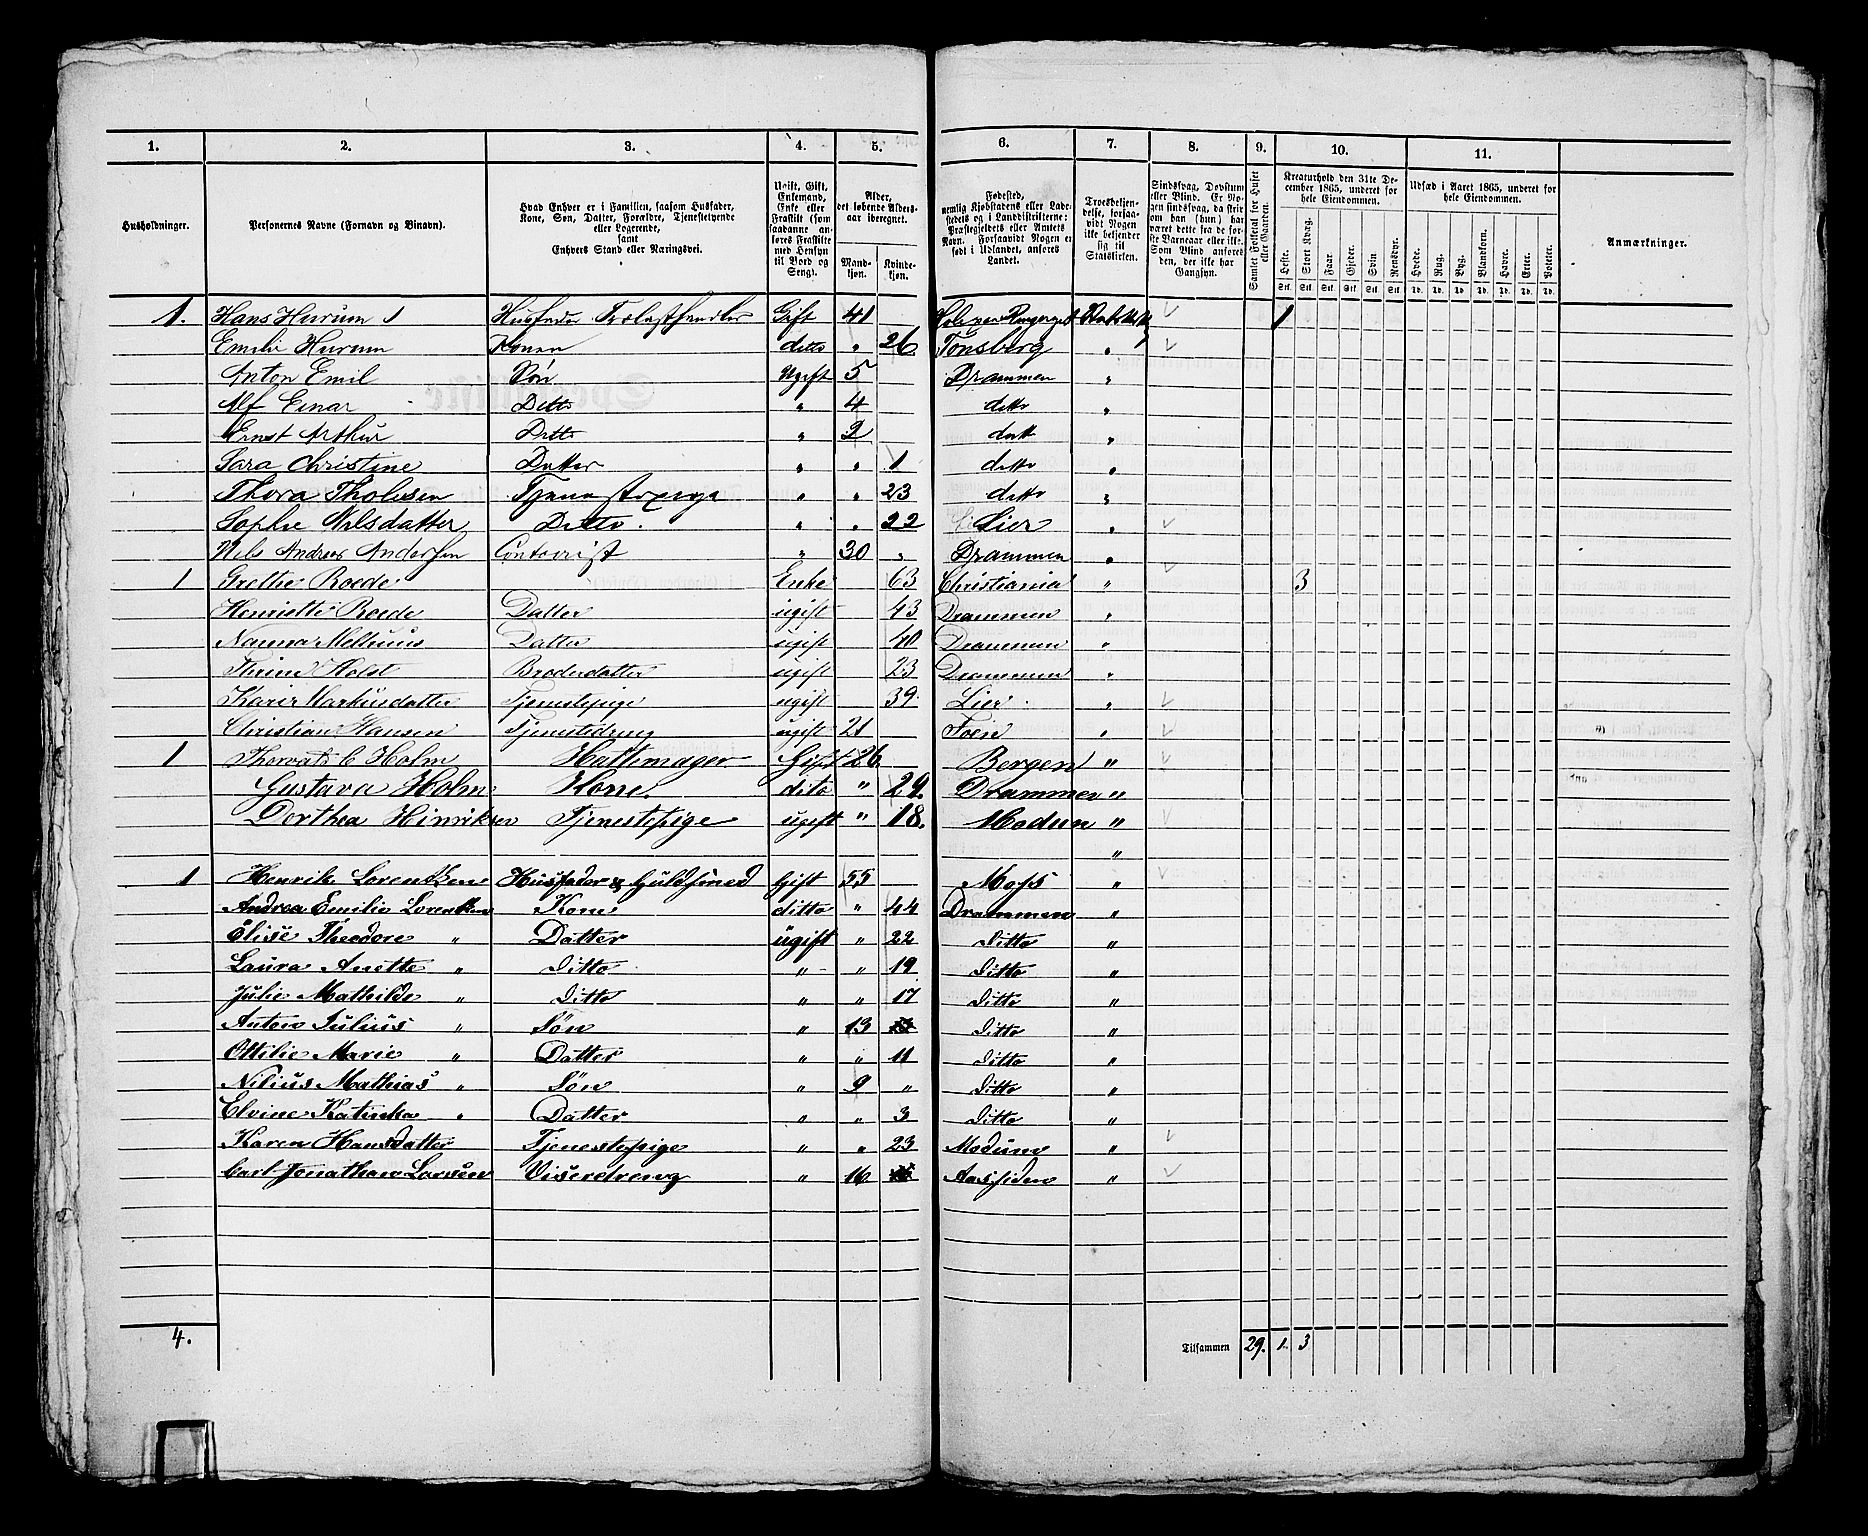 1. 2. 3. 4. 5. 6. 7. 8. 9. 10. 11.
Husholdninger.
Personernes Navne (Fornavn og Tilnavn).
Hvad Enhver er i Familien, saasom Husfader, Kone, Søn, Datter, Forældre, Tjenestetyende eller Logerende, samt Enhvers Stand eller Næringsvei.
Ugift, Gift, Enkemand, Enke eller Fraskilt (som saadanne anføres Fraskilte med Hensyn til Bord og Seng).
Alder, det løbende Aldersaar iberegnet.
Mandkjøn. Kvindekjøn.
Fødested, nemlig Kjøbstadens eller Ladestedets og i Landdistrikterne: Præstegjeldets eller Amtets Navn. Forsaavidt Nogen er født i Udlandet, anføres Landet.
Troesbekjendelse, forsaavidt Nogen ikke bekjender sig til Statskirken.
Sindssvag, Døvstum eller Blind. Er Nogen sindssvag, da skrives om han (hun) har været dette fra de første Barneaar eller ikke. Som Blind anføres den, der ikke har Gangsyn.
Samlet Folketal for Huset eller Gaarden.
Kreaturhold den 31te December 1865, underet for hele Eiendommen.
Heste. Stort Kvæg. Faar. Gjeder. Svin. Rensdyr.
Stk. Stk. Stk. Stk. Stk. Stk.
Udsæd i Aaret 1865, underet for hele Eiendommen.
Hvede. Rug. Byg. Blandkorn. Havre. Erter. Poteter.
Td. Td. Td. Td. Td. Td. Td.
Anmærkninger.
1. Hans Hurum 1 Husfader Trælasthandler Gift 41 1
Emilie Hurum Konen ditto " 26 Tønsberg "
Anton Emil Søn Ugift 5 Drammen "
Alf Einar Ditto " 4 ditto "
Ernst Arthur Ditto " 2 ditto "
Sara Christine Datter " " 1 ditto "
Thora Tholesen Tjenestepige " " 23 ditto "
Sophie Nilsdatter Ditto. " " 22 Lier "
Nils Andreas Andersen Contorist " 30 " Drammen "
1 Grethe Roede Enke 63 Christiania " 3
Henriette Roede Datter ugift 43 Drammen "
Nanna Datter ugift 40 Drammen "
Thrine Holst Broderdatter ugift 23 Drammen "
Karin Markusdatter Tjenestepige ugift 39. Lier. "
Christian Hansen Tjenestedreng ugift 21 "
1 Thorvald C Holm Hattemager Gift 26 Bergen "
Gustava Holm Kone. dito " 29. Drammen "
Dorthea Hinriksen Tjenestepige ugift " 18. Modum "
"
1 Henrik Lorentzen Husfader & Guldsmed Gift 55 Moss "
Andrea Emilie Lorentzen Kone ditto " 44 Drammen "
Elise Theodore " Datter ugift " 22 Ditto "
Laura Anette " Ditto " " 19 Ditto "
Julie Mathilde " Ditto " " 17 Ditto "
Anton Julius " Søn " 13 Ditto "
Ottilie Marie " Datter " " 11 Ditto "
Nilius Mathias " Søn " 9 " Ditto "
Elvine Katinka " Datter " " 3 Ditto "
Karen Hansdatter Tjenestepige " " 23 Modum "
Carl Jonathan Larsen Viseredreng " 16 Aassiden "
4. Tilsammen 29. 1. 3